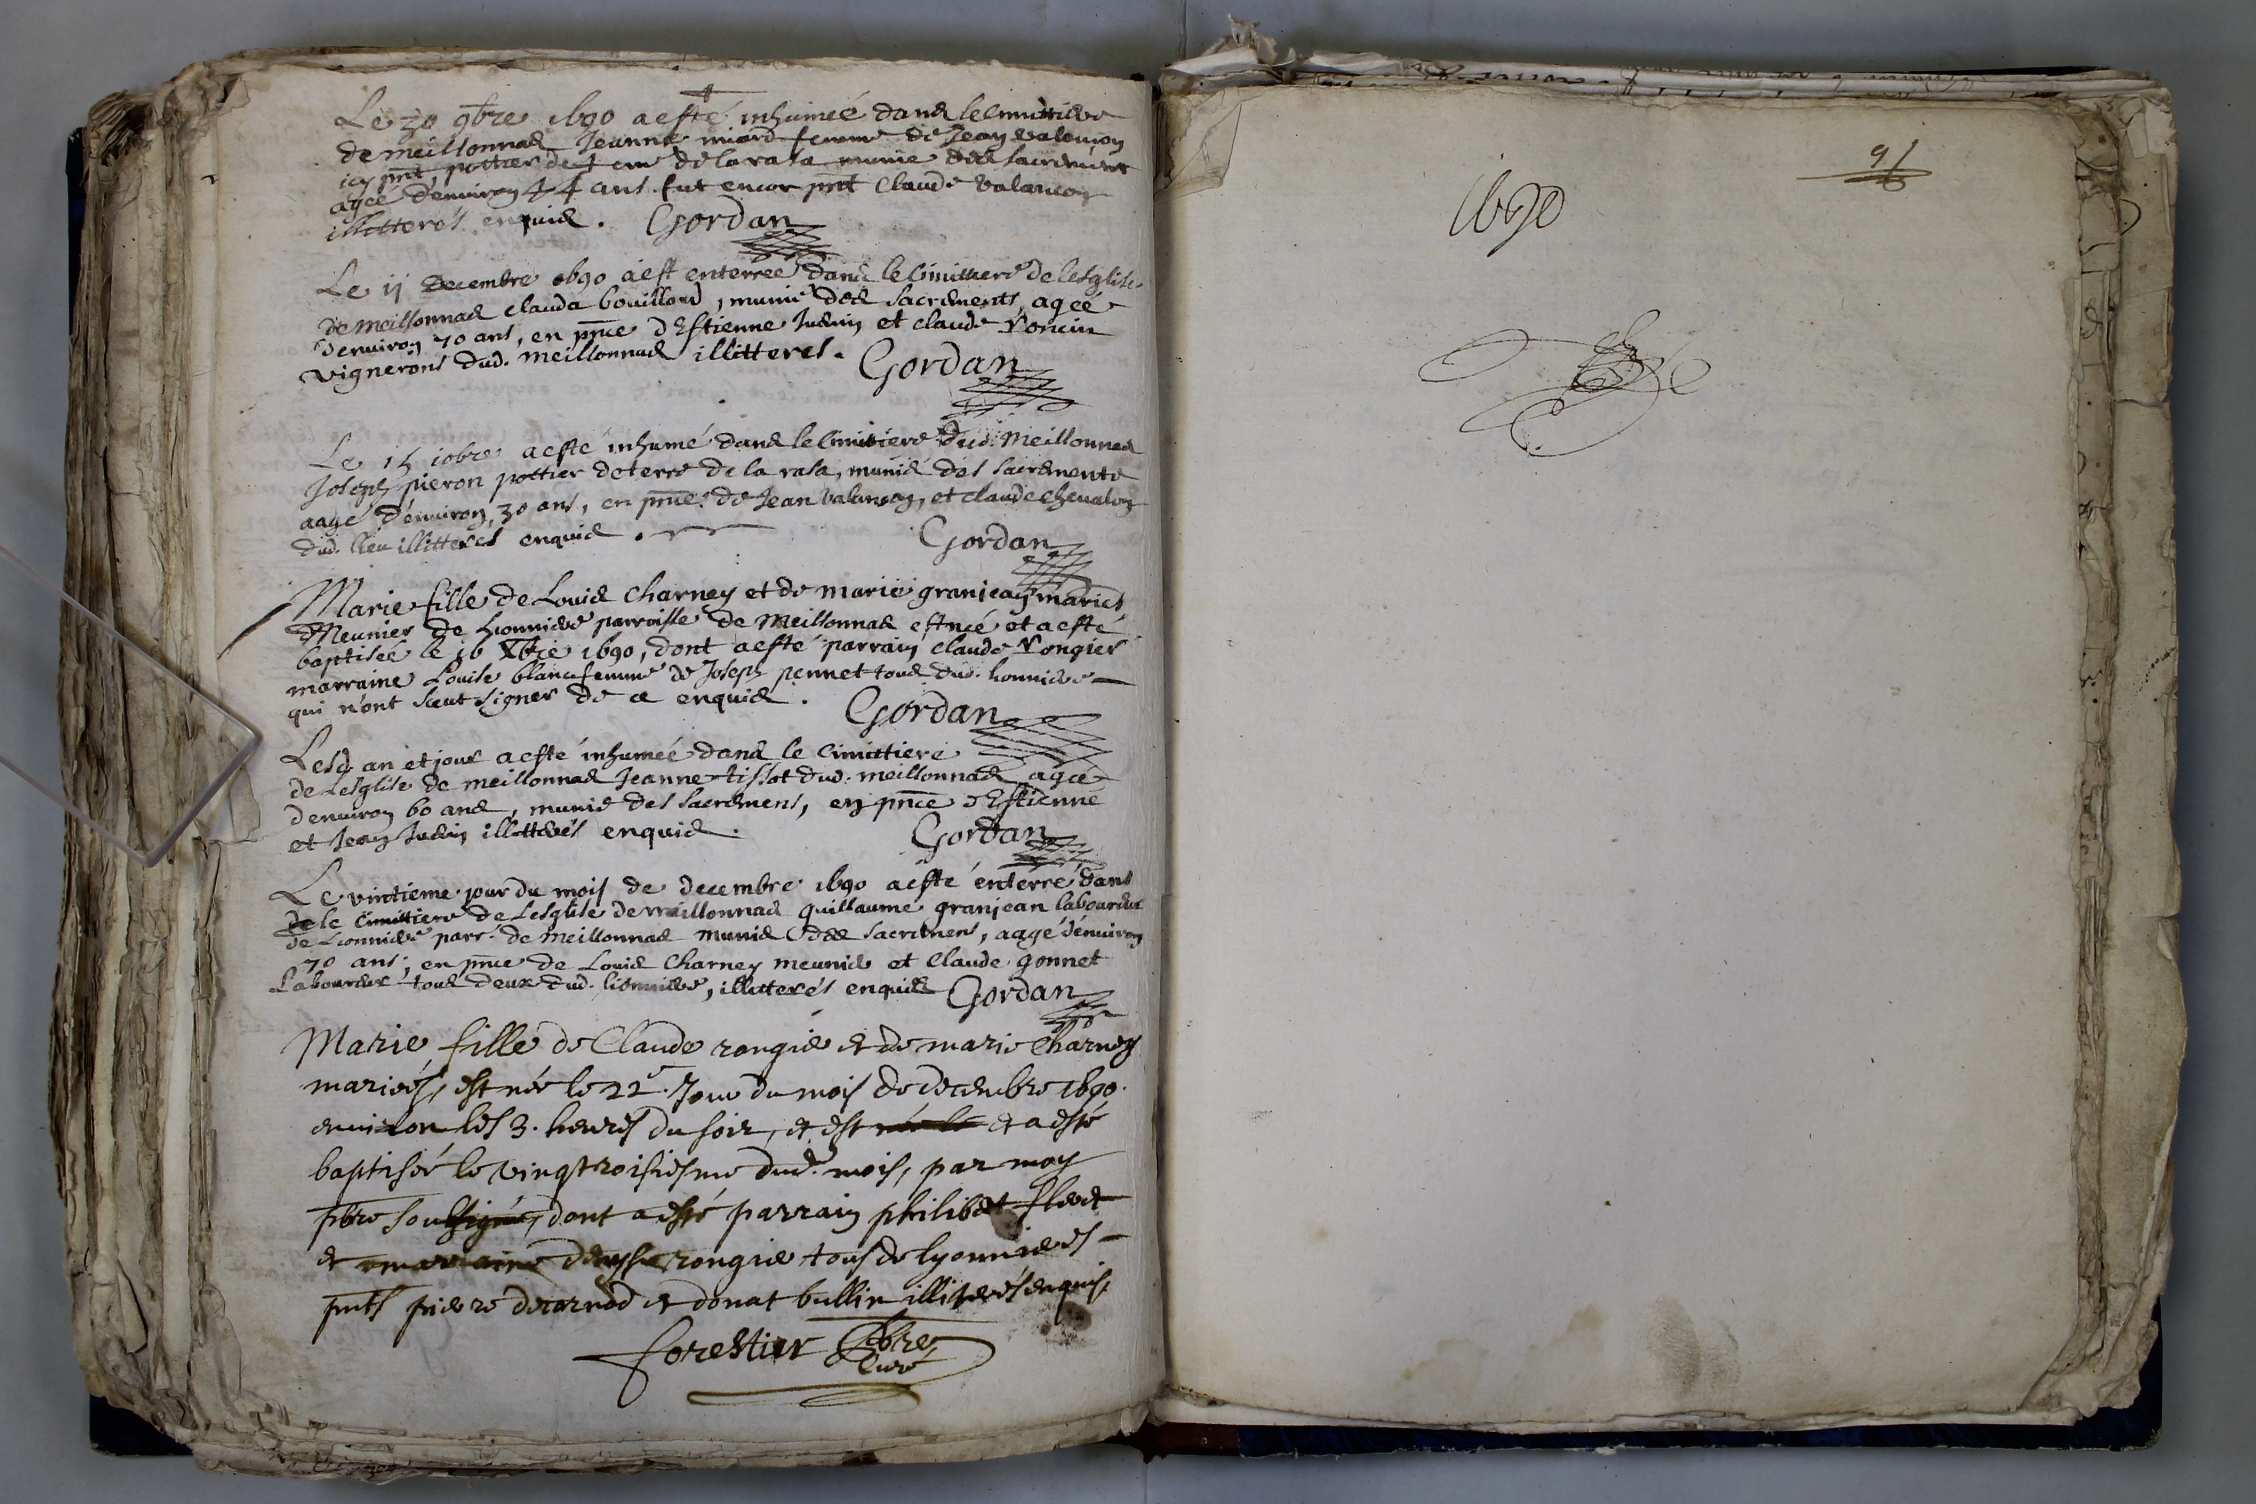 Le 30 9bre 1690 a esté inhumeé dans le cimittiere
de meillonnas Jeanne miard femme de Jean valancon
icy pnt, pottier de terre de la rasa munie des sacrements
ageé d'environ 44 ans. fut encor pnt Claude valancon
illitterés enquis. Gordan
Le 11 Decembre 1690 a est enterreé dans le Cimittiere de lesglise
de meillonnas clauda bouillond, munie des sacrements, ageé
d'environ 70 ans, en pnce d'Estienne Judrin et claude Voncin
vignerons dud. meillonnas illitteres. Gordan
Le 15 10bre a esté inhumé dans le cimitiere dud. Meillonnas
Joseph pieron pottier de terre de la rasa, munis des sacrements
aagé d'environ 30 ans, en pnce de Jean valancon, et claude chevalon
dud. lieu illitteres enquis. Gordan
Marie fille de Louis Charney et de marie granjean mariés
Meunier de Lionnieres parroisse de Meillonnas est neé et a esté
baptiseé le 16 Xbre 1690, dont a esté parrain Claude Rongier
marraine Louise blanc femme de Joseph pennet tous dud. Lionnieres
qui n'ont sceut signer de ce enquis. Gordan
Lesd an et jour a esté inhumeé dans le Cimittiere
de Lesglise de meillonnas Jeanne tissot dud. meillonnas ageé
d'environ 60 ans, munie des sacremens, en pnce d'Estienne
et Jean Judrin illitterés enquis. Gordan
Le vintieme jour du mois de decembre 1690 a esté enterré dans
de le Cimittiere de Lesglise de meillonnas Guillaume granjean laboureur
de Lionnieres parr. de meillonnas munis des sacremens, aagé d'environ
70 ans, en pnce de Louis Charney meunier et Claude gonnet
Laboureur tous deux dud. Lionnieres, illitterés enquis Gordan
Marie fille de Claude rongier et de marie Charney
mariés, est née le 22e. Jour du mois de decembre 1690.
environ les 3. heures du soir, et est née le et a esté
baptisée le vingtroisiesme dud. mois, par moy
pbre soubsigné, dont a esté parrain philibert
et marraine denyse rongier tous de lyonnieres
pnts pierre decornod et donat bullin illiterés enquis,
forestier pbre
Curé
91
1690